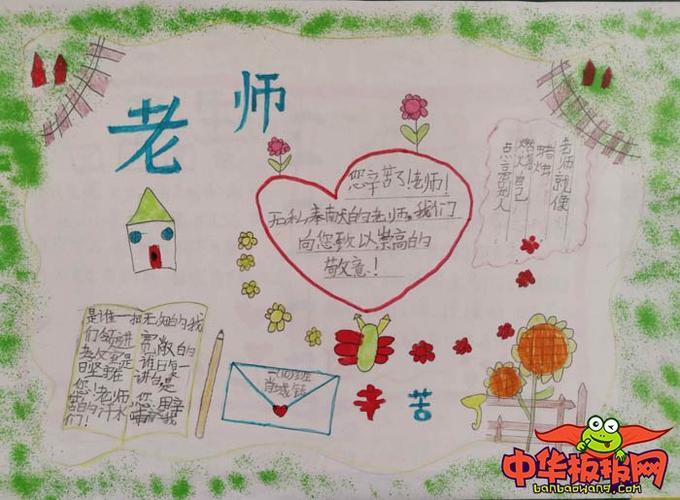 老师
您辛苦了!老师!
无私奉献的老师。我们
向您致以崇高的
敬意!
老师就像
蜡烛
燃烧自己
点亮别人
是谁一把无知的我
们领进 宽敞的
教室是 谁日复一
日坚 讲台是
您!老师 您 用辛
苦的汗水 我
们!
辛苦
中华板报网
banbaowang.com